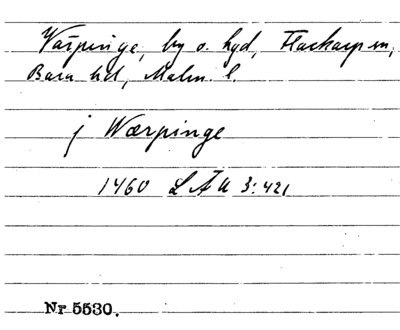 Värpinge, by o. hgd, Flackarp sn,
Bara hd, Malm. l.
j Wærpinge
1460 LÄU 3:421
Nr 5530.